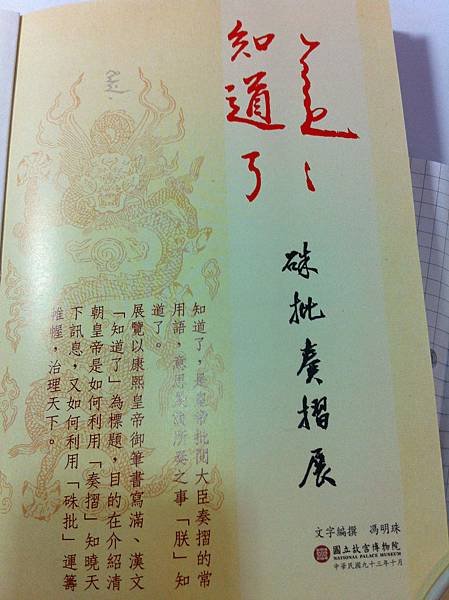 知道了
硃批奏摺展
知道了，是皇帝批閱大臣奏摺的常
用語，意思是說所奏之事「朕」知
道了。
展覽以康熙皇帝御筆書寫滿、漢文
「知道了」為標題，目的在介紹清
朝皇帝是如何利用「奏摺」知曉天
下訊息，又如何利用「硃批」運籌
帷幄，治理天下。
文字編撰 馮明珠
國立故宮博物院
NATIONAL PALACE MUSEUM
中華民國九十三年十月